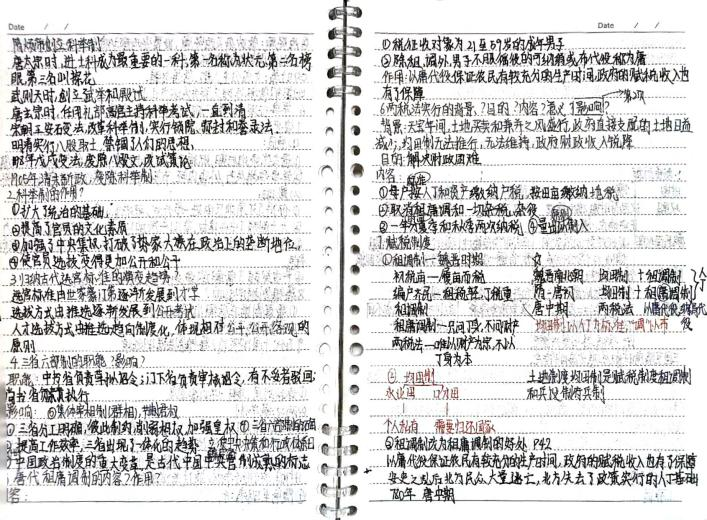 Date / /
隋炀帝创立科举制
唐太宗时,进士科成为最重要的一科,第一名称为状元,第二名榜
眼,第三名叫探花
武则天时,创立武举和殿试
唐玄宗时,任用礼部侍郎主持科举考试,一直到清
宋朝王安石变法,改革科举制,实行锁院,糊封和誊录法.
明清实行八股取士,禁锢了人们的思想.
戊戌变法,废除八股文,改试策论
1905年清末新政,废除科举制
2.科举制的作用?
①扩大了统治的基础.
②提高了官员的文化素质
③加强了中央集权,打破了世家大族在政治上的垄断地位.
④使官员选拔变得更加公开和公平
3.归纳古代选官标准的演变趋势?
选官标准由世家门第逐渐发展到才学
选拔方式由推选逐渐发展到公开考试
人才选拔方式由推选趋向制度化,体现相对公平,公开,客观的
原则
4.三省六部制的职能?影响?
职能:中书省负责草拟诏令;门下省负责审核诏令,有不妥者驳回;
尚书省负责执行
影响:
①三省分工明确,彼此制约,削弱相权,加强皇权
②提高工作效率,三省出现了一体化的趋势
③中国政治制度的重大变革,是古代中国中央官制成熟的标志
唐代租庸调制的内容?作用?
Date / /
①税征收对象为21至59岁的成年男子
②除租,调外,男子不服徭役的可纳绢或布代役称为庸
作用:以庸代役保证农民有较充分的生产时间,政府的赋税收入也
有了保障
6.两税法实行的背景?目的?内容?意义?影响?
背景:天宝年间,土地买卖和兼并之风盛行,政府直接支配的土地日益
减少,均田制无法推行,无法维持,政府财政收入锐降
目的:解决财政困难
内容:
①每户按人丁和资产缴纳户税,按田亩缴纳地税
②取消租庸调和一切杂税、杂役
③一年分夏季和秋季两次纳税 ④量出制入
7.赋税制度
①租调制—魏晋时期
初税亩—履亩而税 魏晋南北朝 均田制+租调制
编户齐民—租税轻,丁税重 隋—唐初 均田制+租庸调制
租调制 唐中期 两税法 以庸代役,纳庸代役
租庸调制—只问丁身,不问财产
两税法—唯以财产为宗,不以
丁身为本
② 均田制 土地制度均田制是赋税制度租调制
永业田 口分田 和兵役制府兵制
个人私有 需要归还国家
③租调制改为租庸调制的好处 P42
以庸代役保证农民有较充分的生产时间,政府的赋税收入也有了保障
安史之乱后北方民众大量逃亡,北方失去了政策实行的人丁基础
780年 唐中期